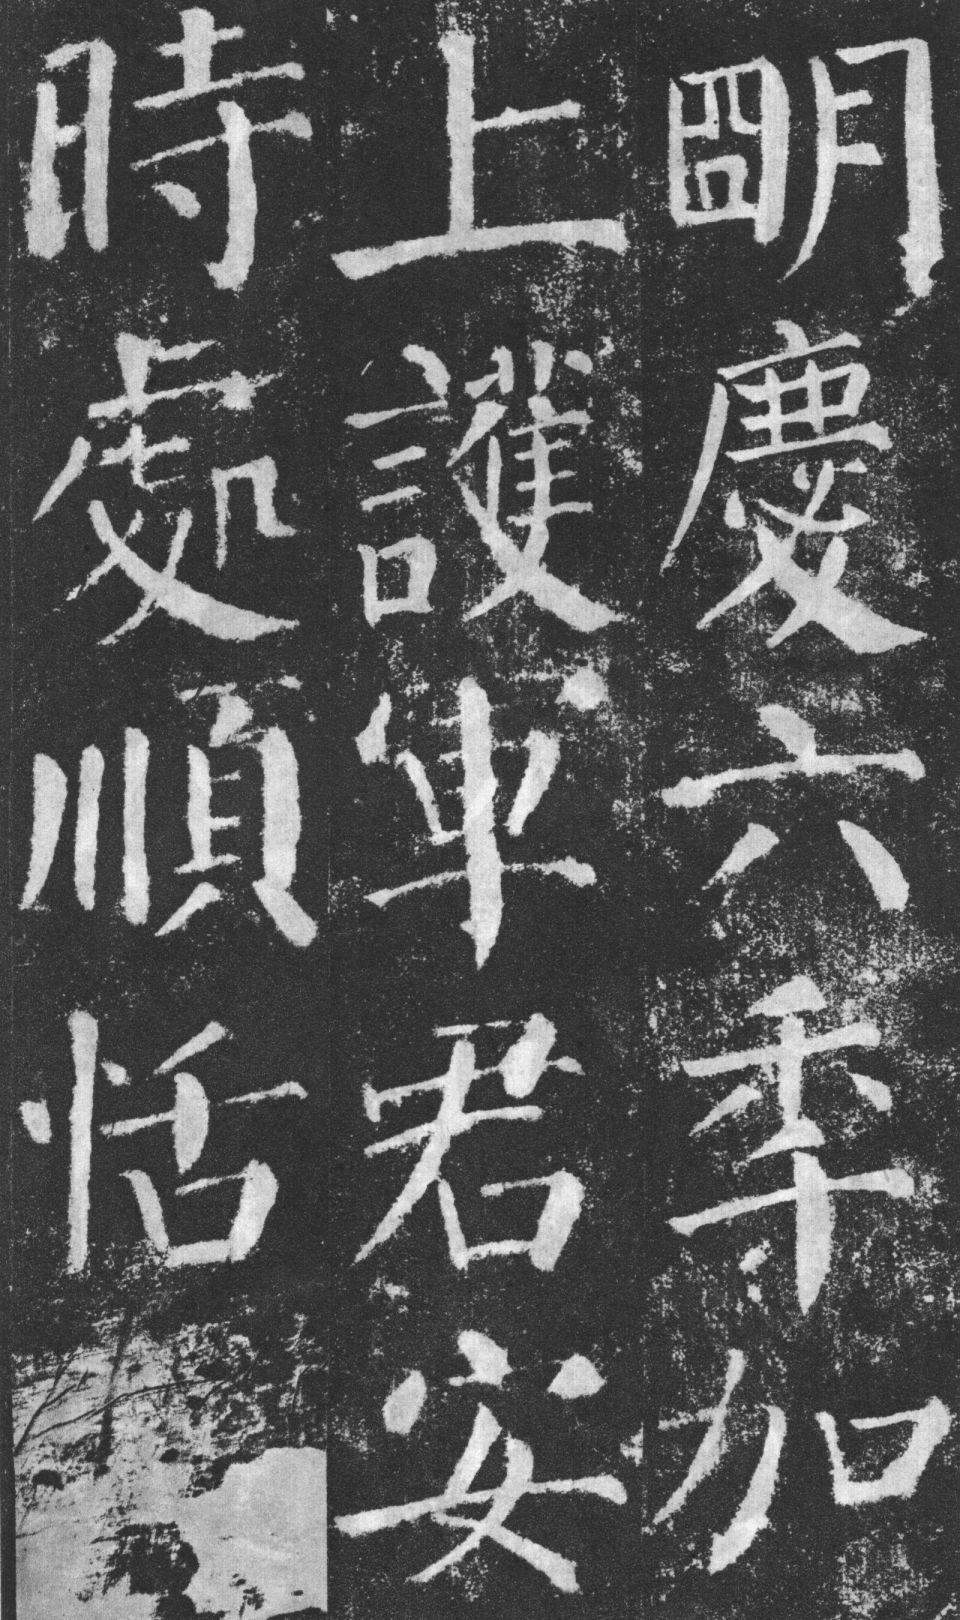 朙慶六秊加
上護軍君安
時處順恬